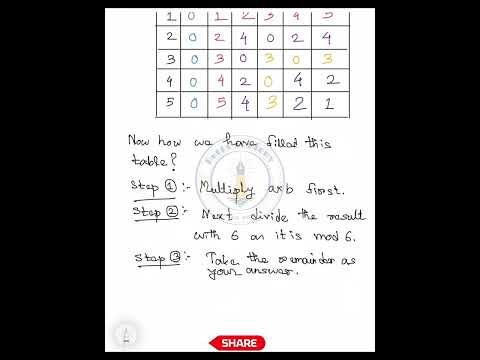 1 0 1 2 3 4 5
2 0 2 4 0 2 4
3 0 3 0 3 0 3
4 0 4 2 0 4 2
5 0 5 4 3 2 1
Now how we have filled this
table?
Step ① :- Multiply axb first.
Step ② :- Next divide the result
with 6 as it is mod 6.
Step ③ :- Take the remainder as
your answer.
SHARE